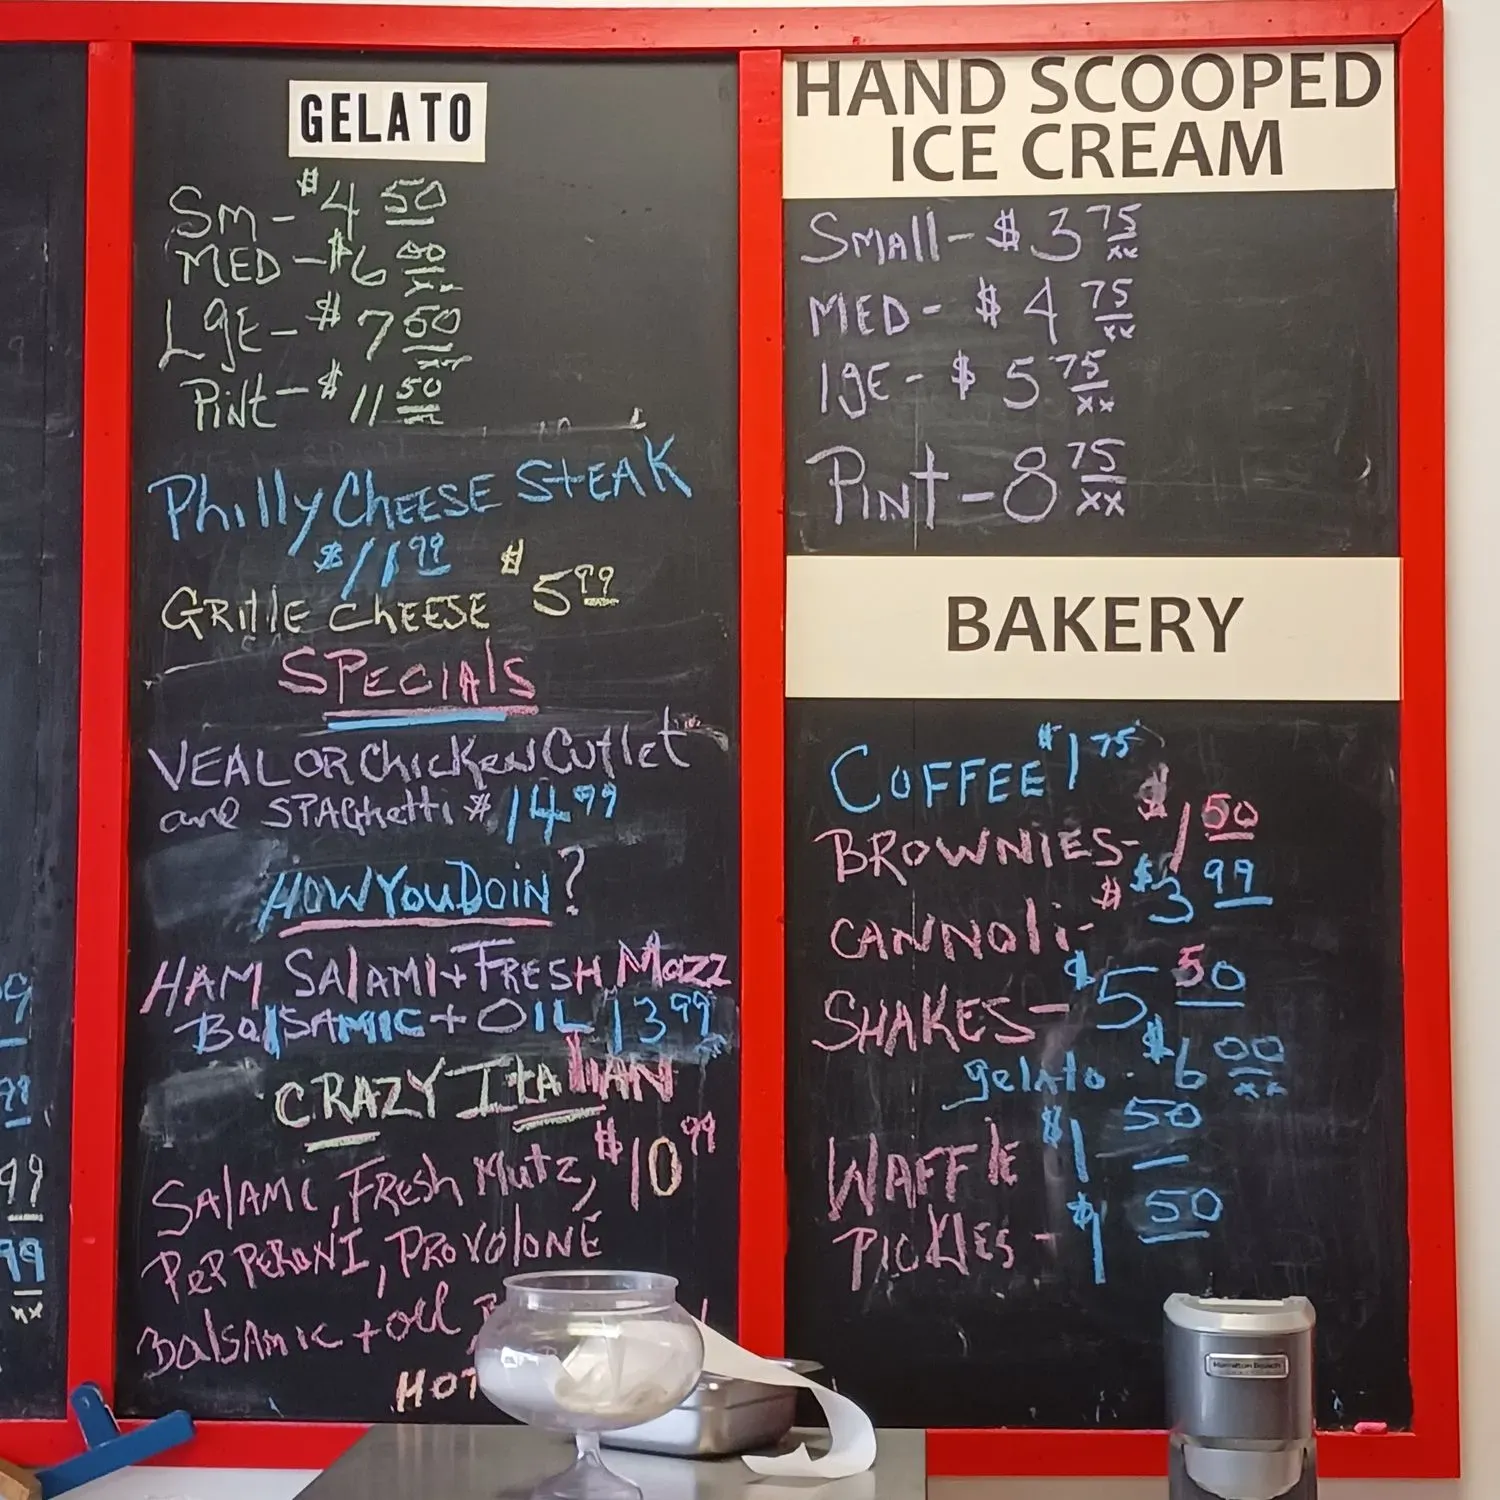 GELATO
Sm - $4 50
MED - $6 00 xx
LgE - $7 50 xx
Pint - $11 50
Philly CHEESE STEAK
$11.99
GRille CHEESE $5 99
SPECIALS
VEAL OR Chicken Cutlet
and SPAGhetti $14.99
HOW YOU DOIN?
HAM SALAMI + FRESH Mozz
BalSAMIC + OIL 13 99
CRAZY ITALIAN
SALAMI, FRESH Mutz, $10 99
PEPPERONI, PROVOLONE
BalSAMIC + oil
HOT
HAND SCOOPED
ICE CREAM
Small - $3 75 xx
MED - $4 75 xx
lgE - $5 75 xx
PINT - 8 75 xx
BAKERY
COFFEE $1 75
BROWNIES - $1 50
CANNOli - $ $3 99
SHAKES - $5 50
gelato - $6 00 xx
WAFFlE $1 50
PICKlES - $1 50
Hamilton Beach
9
99
99
99
xx